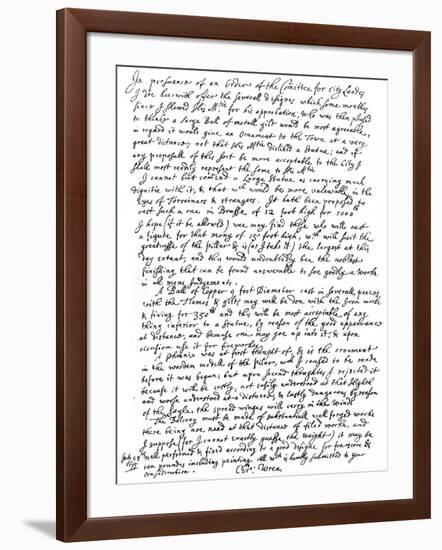 In persuance of an Order of the Comittee for City Landes
I doe heerwith offer the severall designes which some monthes
since I shewed His Mtie for his approbation, who was then pleased
to thinke a large Ball of metall gilt would be most agreeable,
in regard it would give an Ornament to the Town at a very
great distance; not that His Mtie disliked a Statue; and if
any proposall of this sort be more acceptable to the City I
shall most readily represent the same to His Mtie
I cannot but comend a Large Statue as carrying much
dignitie with it, & that wch would be more valewable in the
Eyes of Forreiners & strangers. It hath been proposed to
cast such a one in Brasse of 12 foot high for 1000
I hope (if it be allowed) wee may find those who will cast
a figure for that mony of 15 foot high, wch will suit the
greatnesse of the pillar & is (as I take it) the largest at this
day extant; and this would undoubtedly bee the noblest
finishing that can be found answerable to soe goodly a worke
in all mens Judgements.
A Ball of Copper 9 foot Diameter cast in severall peeces
with the Flames & gilt, may well be don with the Iron work
& fixing for 350 and this will be most acceptable of any
thing inferior to a Statue, by reason of the good appearance
at distance, and because one may goe up into it; & upon
occasion use it for fireworkes.
A phœnix was at first thought of, & is the ornament
in the wooden modell of the pillar, wch I caused to be made
before it was begun; but upon second thoughts I rejected it
because it will be costly, not easily understood at that Highth
and worse understood at a distance & lastly dangerous by reason
of the sayle, the spread winges will carry in the Winde
The Balcony must be made of substantiall well forged worke
there being noe need at that distance of filed worke, and
I suppose (for I cannot exactly guesse the weight) it may be
well performed & fixed according to a good designe for fourscore &
ten poundes including painting. All wch is humbly submitted to your
consideration.
July 28
Chr: Wren